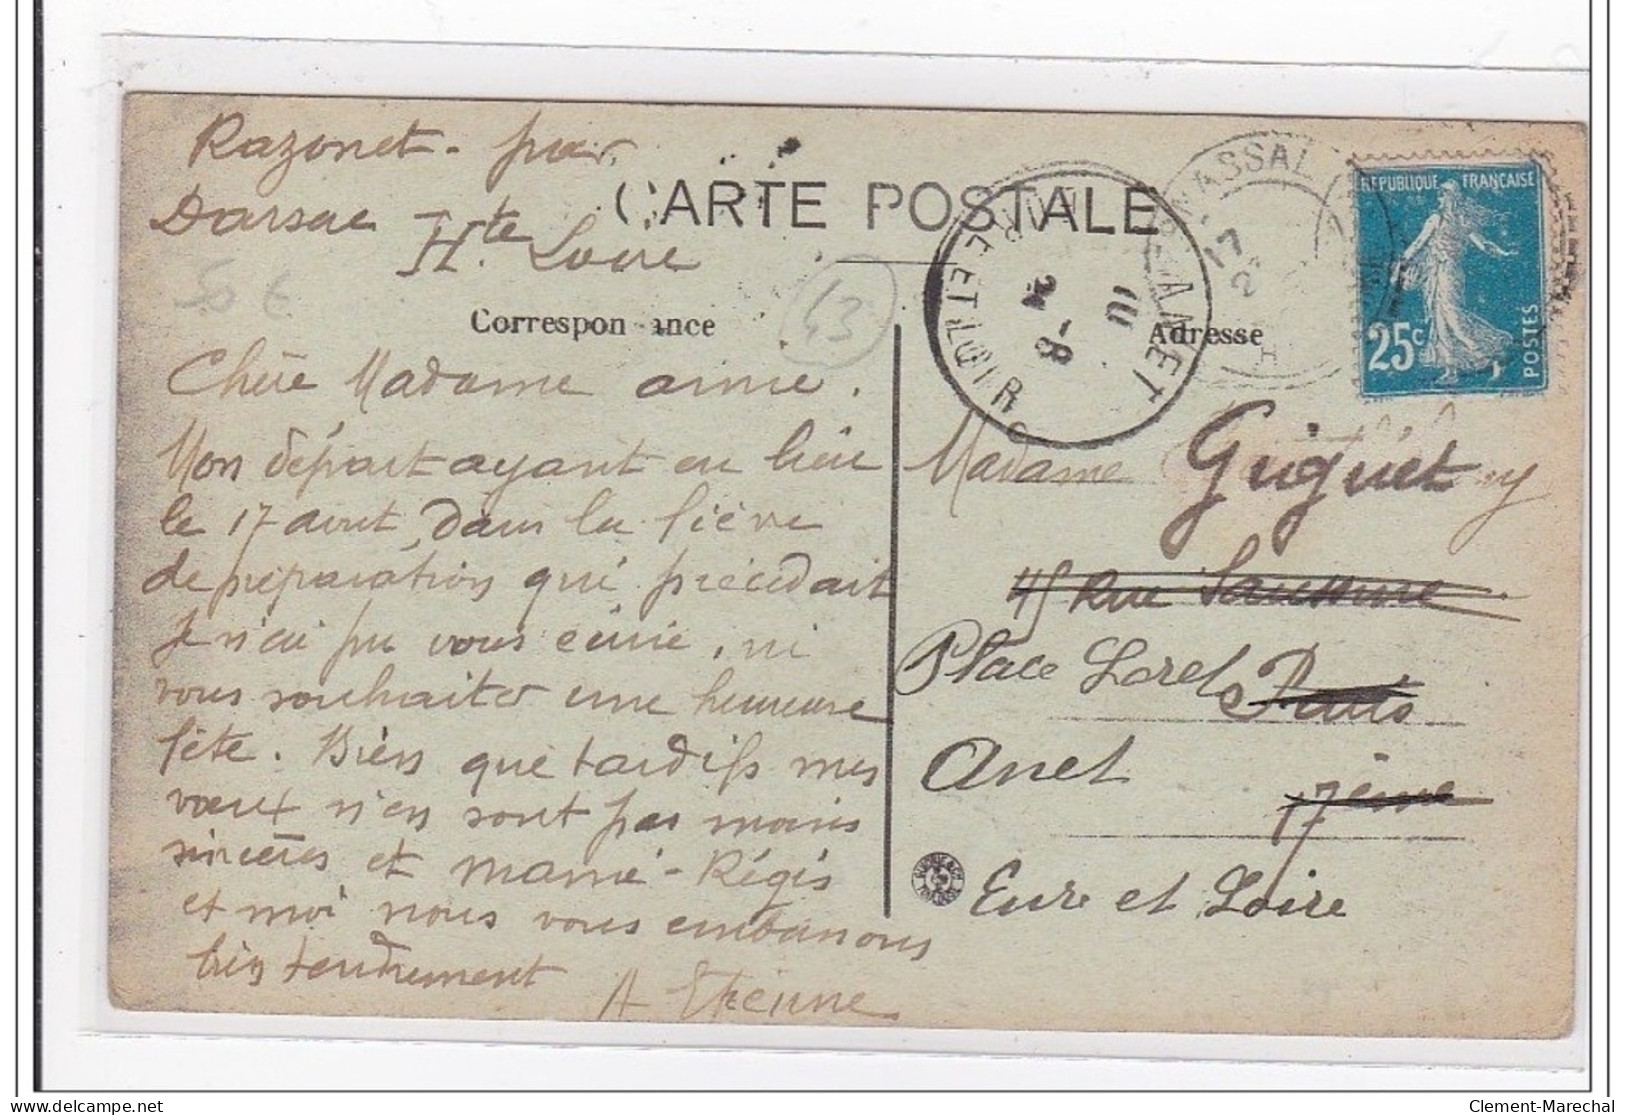 Razonet - par
Darsac Hte Loire
CARTE POSTALE
Correspondance
Adresse
ANET
EURE ET LOIR
10
8
24
ASSAL
17
REPUBLIQUE FRANÇAISE
25c
POSTES
43
50 €
Chère Madame amie.
Mon départ ayant eu lieu
le 17 aout, dans la fièvre
de préparation qui précédait
Je n'ai pu vous écrire, ni
vous souhaiter une heureuse
fête. Bien que tardifs mes
vœux n'en sont pas moins
sincères et mamé - Régis
et moi nous vous embrassons
bien tendrement
A Etienne
Madame Guiguet
45 Rue Saussure
Place Lorel Paris
Anet
17ème
Eure et Loire
Clement-Marechal